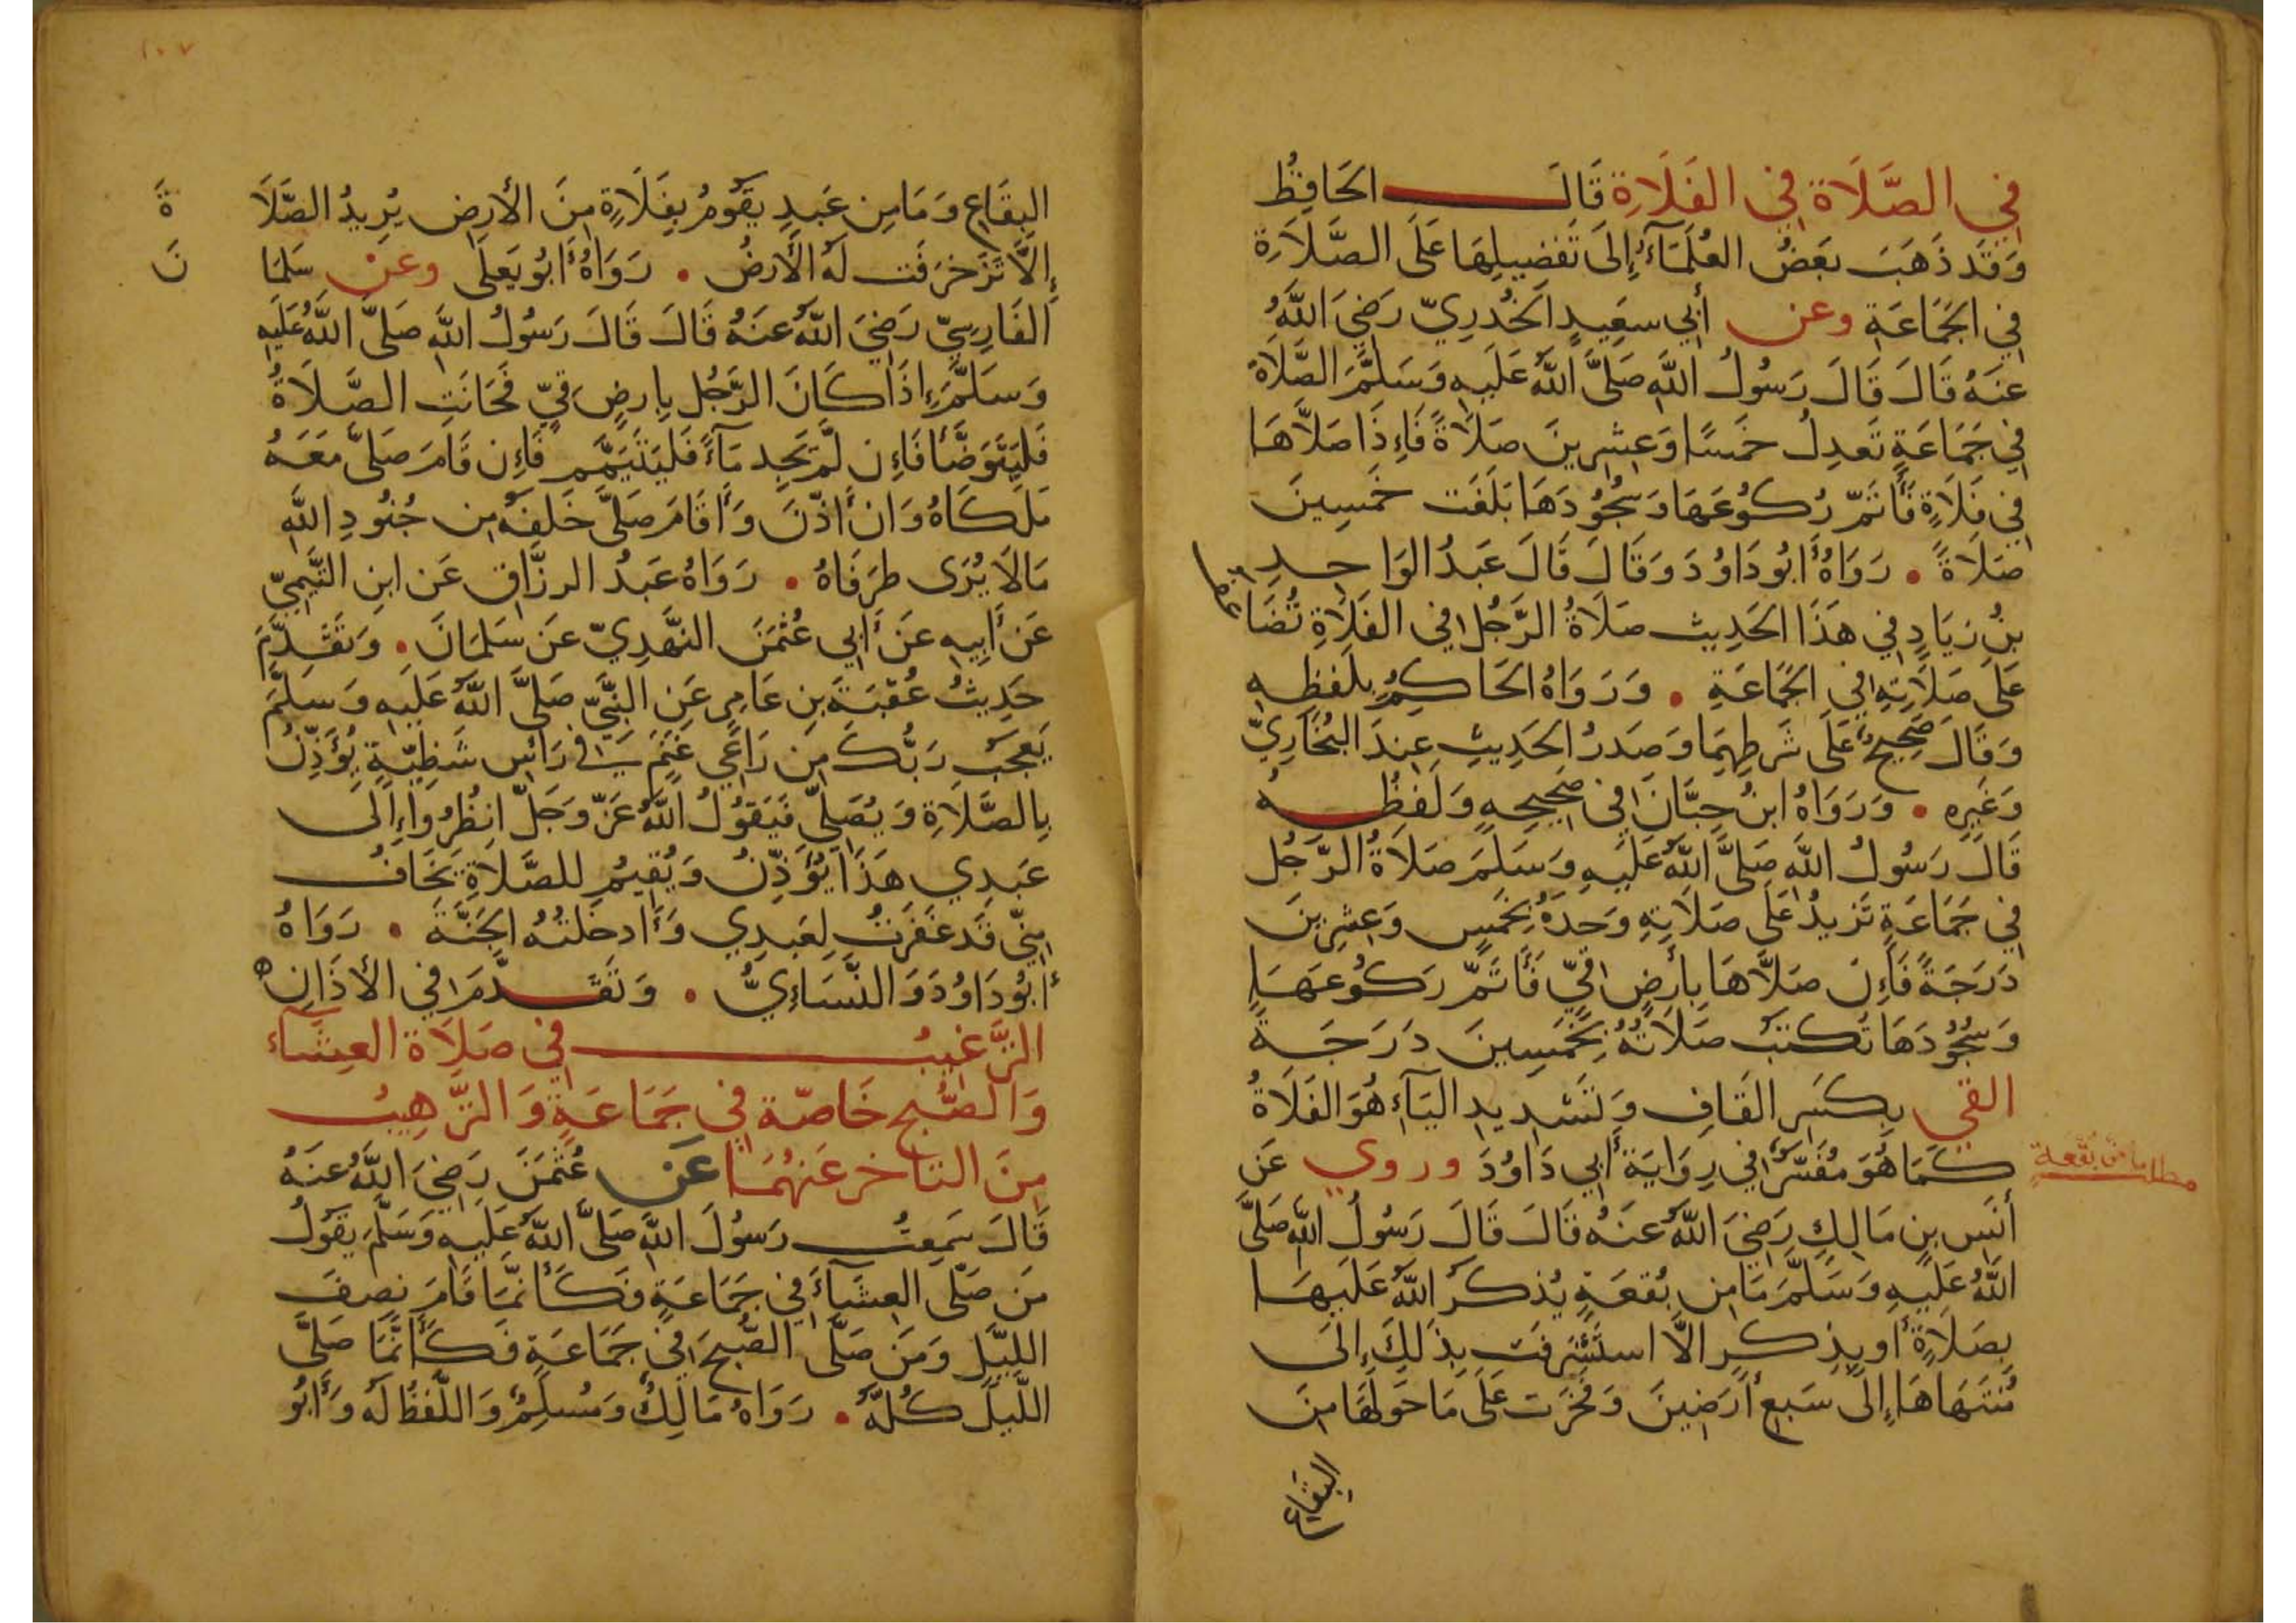 في الصَّلَاة في الفَلَاةِ قَالَ الحَافِظُ
وَقَد ذَهَبَ بَعضُ العُلَمَآءِ إِلَى تَفضِيلِهَا عَلَى الصَّلَاةِ
في الجَمَاعَةِ وعن أَبي سَعِيدٍ الخُدرِيّ رَضِيَ اللَّهُ
عَنهُ قَالَ قَالَ رَسُولُ اللَّهِ صَلَّى اللَّهُ عَلَيهِ وَسَلَّمَ الصَّلَاةُ
في جَمَاعَةٍ تَعدِلُ خَمسًا وَعِشرِينَ صَلَاةً فَإِذَا صَلَّاهَا
في فَلَاةٍ فَأَتَمّ رُكُوعَهَا وَسُجُودَهَا بَلَغَت خَمسِينَ
صَلَاةً • رَوَاهُ أَبُو دَاوُدَ وَقَالَ قَالَ عَبدُ الوَاحِدِ
بنُ زِيَادٍ في هَذَا الحَدِيثِ صَلَاةُ الرَّجُلِ في الفَلَاةِ تُضَاعَفُ
عَلَى صَلَاتِهِ في الجَمَاعَةِ • وَرَوَاهُ الحَاكِمُ بِلَفظِهِ
وَقَالَ صَحِيحٌ عَلَى شَرطِهِمَا وَصَدرُ الحَدِيثِ عِندَ البُخَارِيّ
وَغَيرِهِ • وَرَوَاهُ ابنُ حِبَّانَ في صَحِيحِهِ وَلَفظُهُ
قَالَ رَسُولُ اللَّهِ صَلَّى اللَّهُ عَلَيهِ وَسَلَّمَ صَلَاةُ الرَّجُلِ
في جَمَاعَةٍ تَزِيدُ عَلَى صَلَاتِهِ وَحدَهُ بِخَمسٍ وَعِشرِينَ
دَرَجَةً فَإِن صَلَّاهَا بِأَرضٍ قِيّ فَأَتَمّ رُكُوعَهَا
وَسُجُودَهَا تُكتَبُ صَلَاتُهُ بِخَمسِينَ دَرَجَةً
القي بِكَسرِ القَافِ وَتَشدِيدِ اليَآءِ هُوَ الفَلَاةُ
كَمَا هُوَ مُفَسَّرٌ في رِوَايَةِ أَبي دَاوُدَ وروي عَن
أَنَسِ بنِ مَالِكٍ رَضِيَ اللَّهُ عَنهُ قَالَ قَالَ رَسُولُ اللَّهِ صَلَّى
اللَّهُ عَلَيهِ وَسَلَّمَ مَا مِن بُقعَةٍ يُذكَرُ اللَّهُ عَلَيهَا
بِصَلَاةٍ أَو بِذِكرٍ إلَّا استَشرَفَت بِذَلِكَ إِلَى
مُنتَهَاهَا إِلَى سَبعِ أَرَضِينَ وَفَخَرَت عَلَى مَا حَولَهَا مِنَ
البِقَاعِ
مطلب ما من بُقعة
١٠٧
البِقَاعِ وَمَا مِن عَبدٍ يَقُومُ بِفَلَاةٍ مِنَ الأَرضِ يُرِيدُ الصَّلَاةَ
إِلَّا تَزَخرَفَت لَهُ الأَرضُ • رَوَاهُ أَبُو يَعلَى وعن سَلمَانَ
الفَارِسِيّ رَضِيَ اللَّهُ عَنهُ قَالَ قَالَ رَسُولُ اللَّهِ صَلَّى اللَّهُ عَلَيهِ
وَسَلَّمَ إِذَا كَانَ الرَّجُلُ بِارضٍ قِيّ فَحَانَتِ الصَّلَاةُ
فَليَتَوَضَّأ فَإِن لَّم يَجِد مَآءً فَليَتَيَمَّم فَإِن قَامَ صَلَّى مَعَهُ
مَلَكَاهُ وَان أَذَّنَ وَأَقَامَ صَلَّى خَلفَهُ مِن جُنُودِ اللَّهِ
مَا لَا يُرَى طَرَفَاهُ • رَوَاهُ عَبدُ الرزَّاقِ عَن ابنِ التَّيمِيّ
عَن أَبِيهِ عَن أَبي عُثمَنَ النَّهدِيّ عَن سَلمَانَ • وَتَقَدَّمَ
حَدِيثُ عُقبَةَ بنِ عَامِرٍ عَنِ النَّبِيّ صَلَّى اللَّهُ عَلَيهِ وَسَلَّمَ
يَعجَبُ رَبُّكَ مِن رَاعِي غَنَمٍ في رَأسِ شَظِيَّةٍ يُؤَذِّنُ
بِالصَّلَاةِ وَيُصَلِّي فَيَقُولُ اللَّهُ عَزّ وَجَلّ انظُرُوا إِلَى
عَبدِي هَذَا يُؤَذِّنُ وَيُقِيمُ لِلصَّلَاةِ يَخَافُ
مِنِّي قَد غَفَرتُ لِعَبدِي وَأَدخَلتُهُ الجَنَّةَ • رَوَاهُ
أَبُو دَاوُدَ وَالنَّسَاءِيُّ • وَتَقَدَّمَ في الأَذَانِ ه
التَّرغِيبُ في صَلَاةِ العِشَآءِ
وَالصُّبحِ خَاصّة في جَمَاعَةٍ وَالتَّرهِيبُ
مِنَ التأخر عَنهُمَا عَن عُثمَنَ رَضِيَ اللَّهُ عَنهُ
قَالَ سَمِعتُ رَسُولَ اللَّهِ صَلَّى اللَّهُ عَلَيهِ وَسَلَّمَ يَقُولُ
مَن صَلَّى العِشَآءَ في جَمَاعَةٍ فَكَأَنَّمَا قَامَ نِصفَ
اللَّيلِ وَمَن صَلَّى الصُّبحَ في جَمَاعَةٍ فَكَأَنَّمَا صَلَّى
اللَّيلَ كُلَّهُ • رَوَاهُ مَالِكٌ وَمُسلِمٌ وَاللَّفظُ لَهُ وَأَبُو